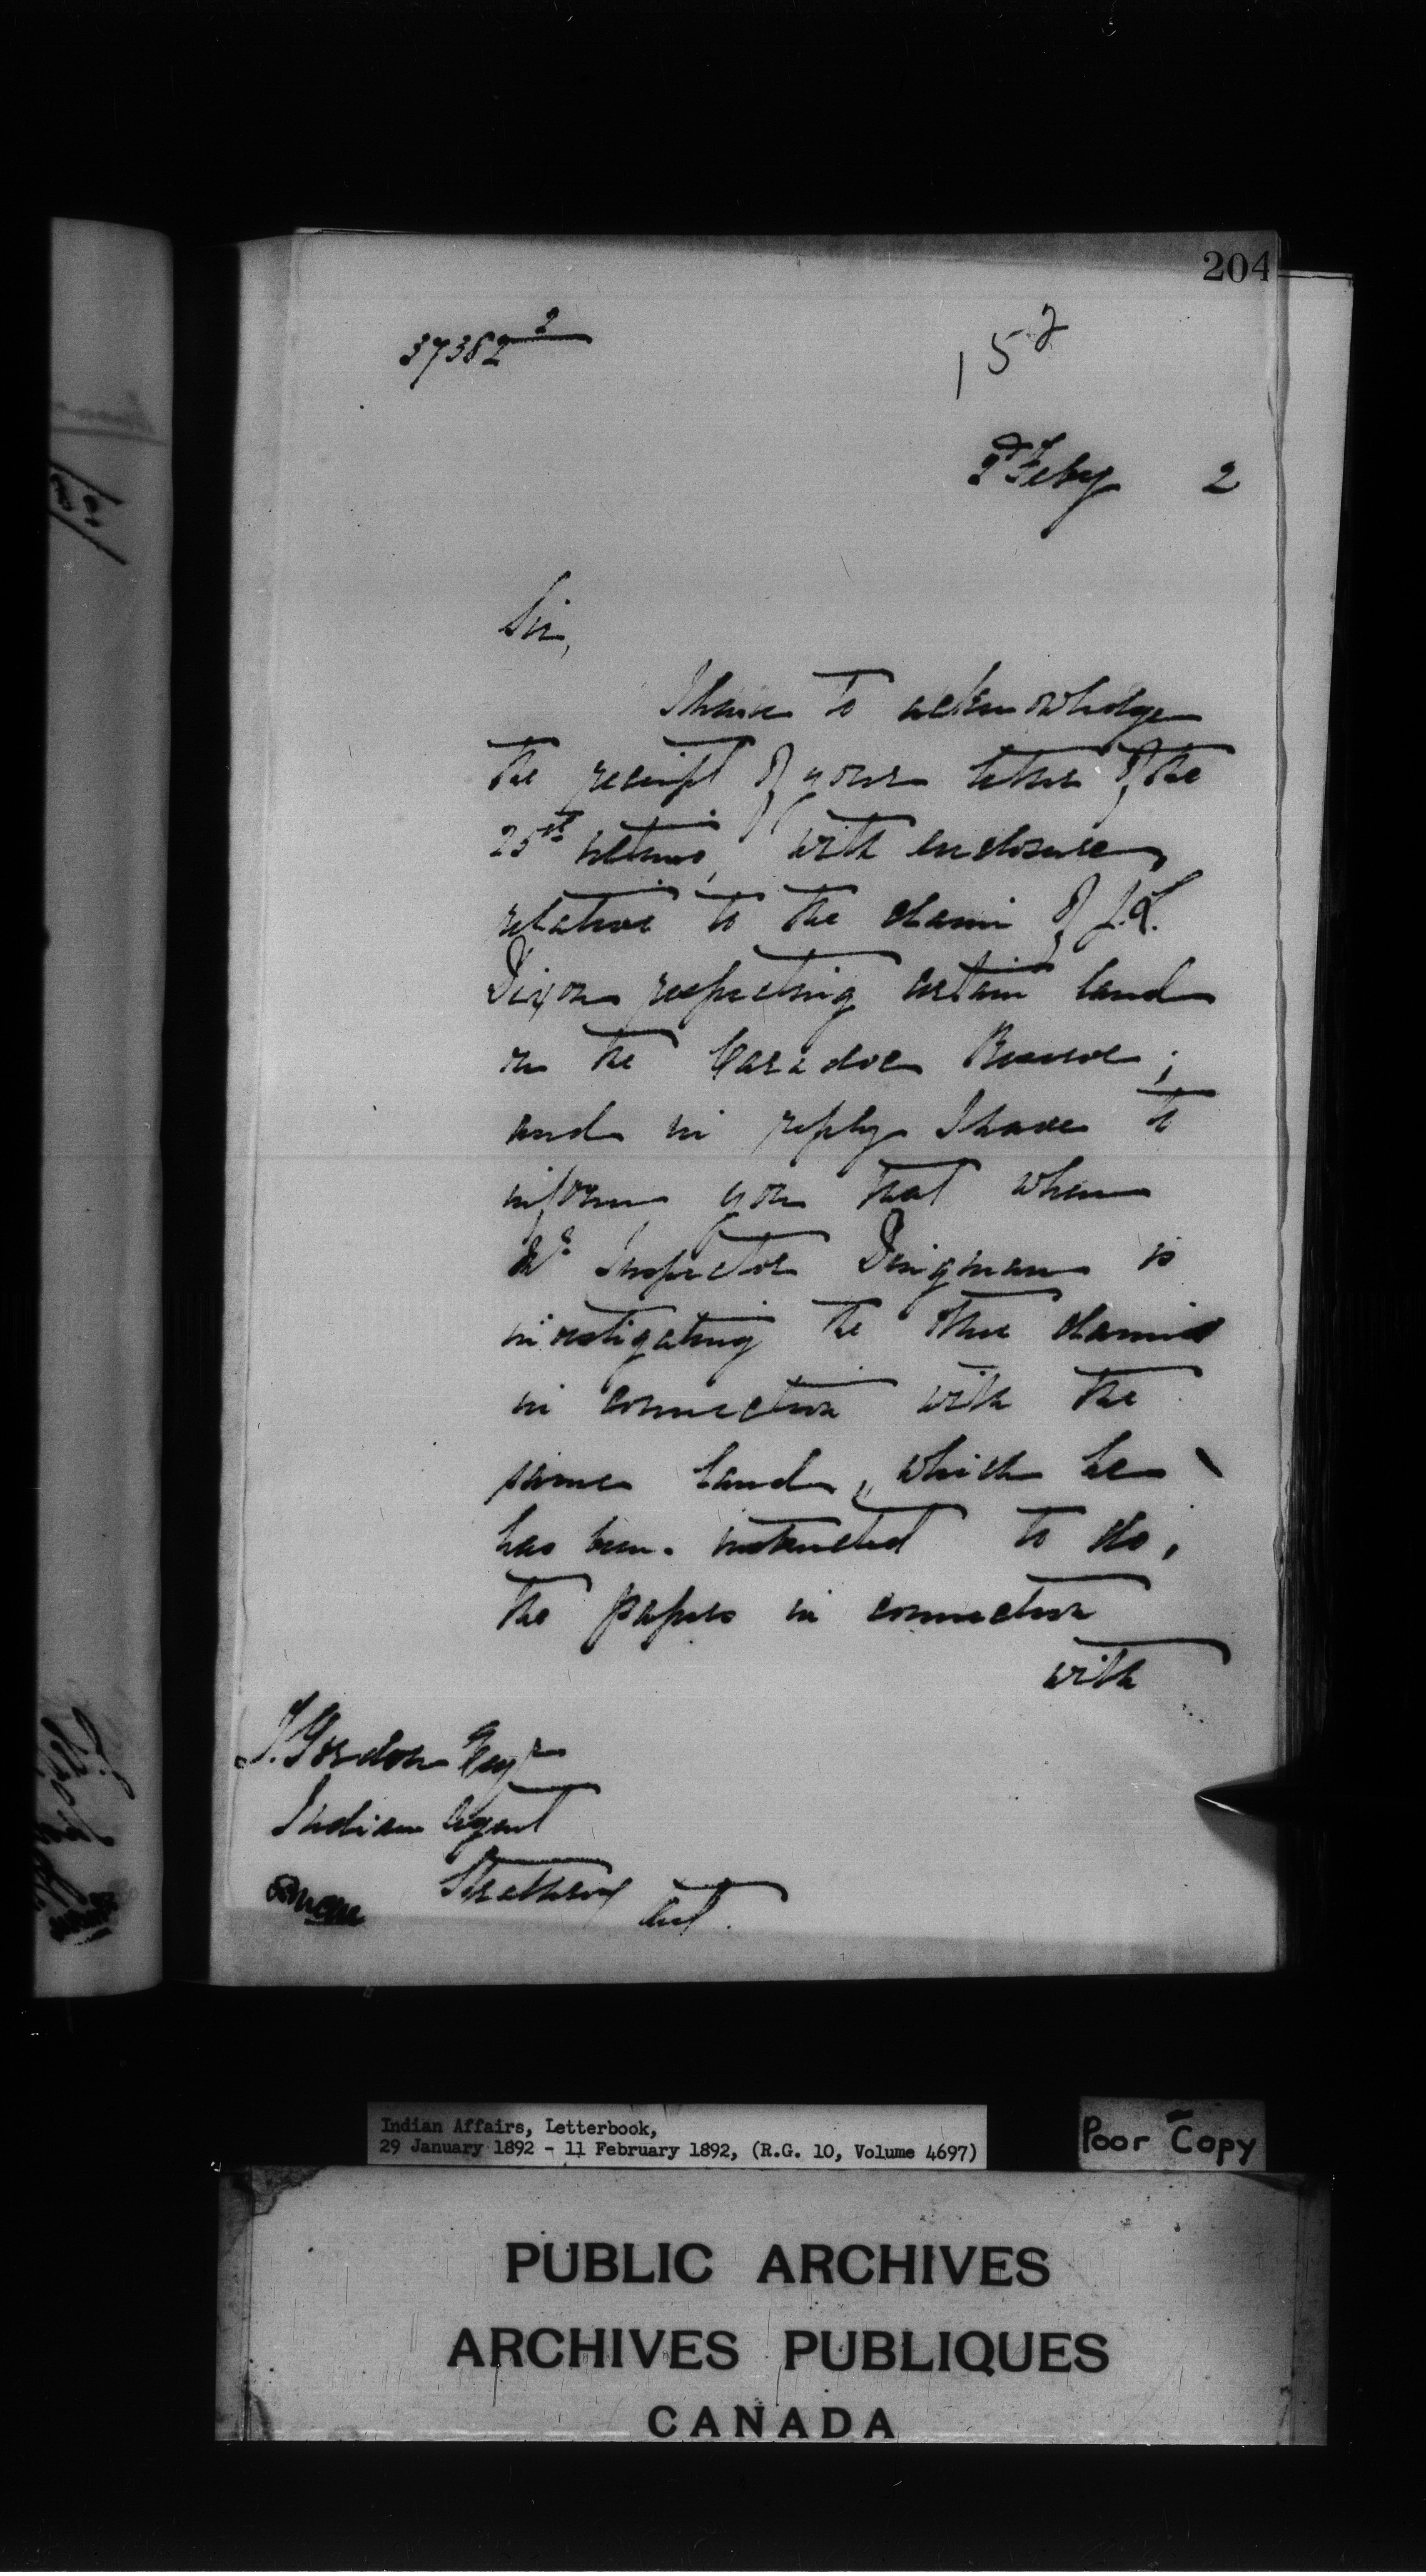 204
37382 2
15 2
2d Feby 2
Sir,
I have to acknowledge
the receipt of your letter of the
25th ultimo, with enclosure,
relative to the claim of J.L.
Dixon respecting certain land
in the Caradoc Reserve;
and in reply I have to
inform you that when
Mr Inspector Dingman is
investigating the other claims
in connection with the
same land, which he
has been instructed to do,
the papers in connection
with
T. Gordon Esqr
Indian Agent
Strathroy Ont.
Indian Affairs, Letterbook,
29 January 1892 - 11 February 1892, (R.G. 10, Volume 4697)
Poor Copy
PUBLIC ARCHIVES
ARCHIVES PUBLIQUES
CANADA